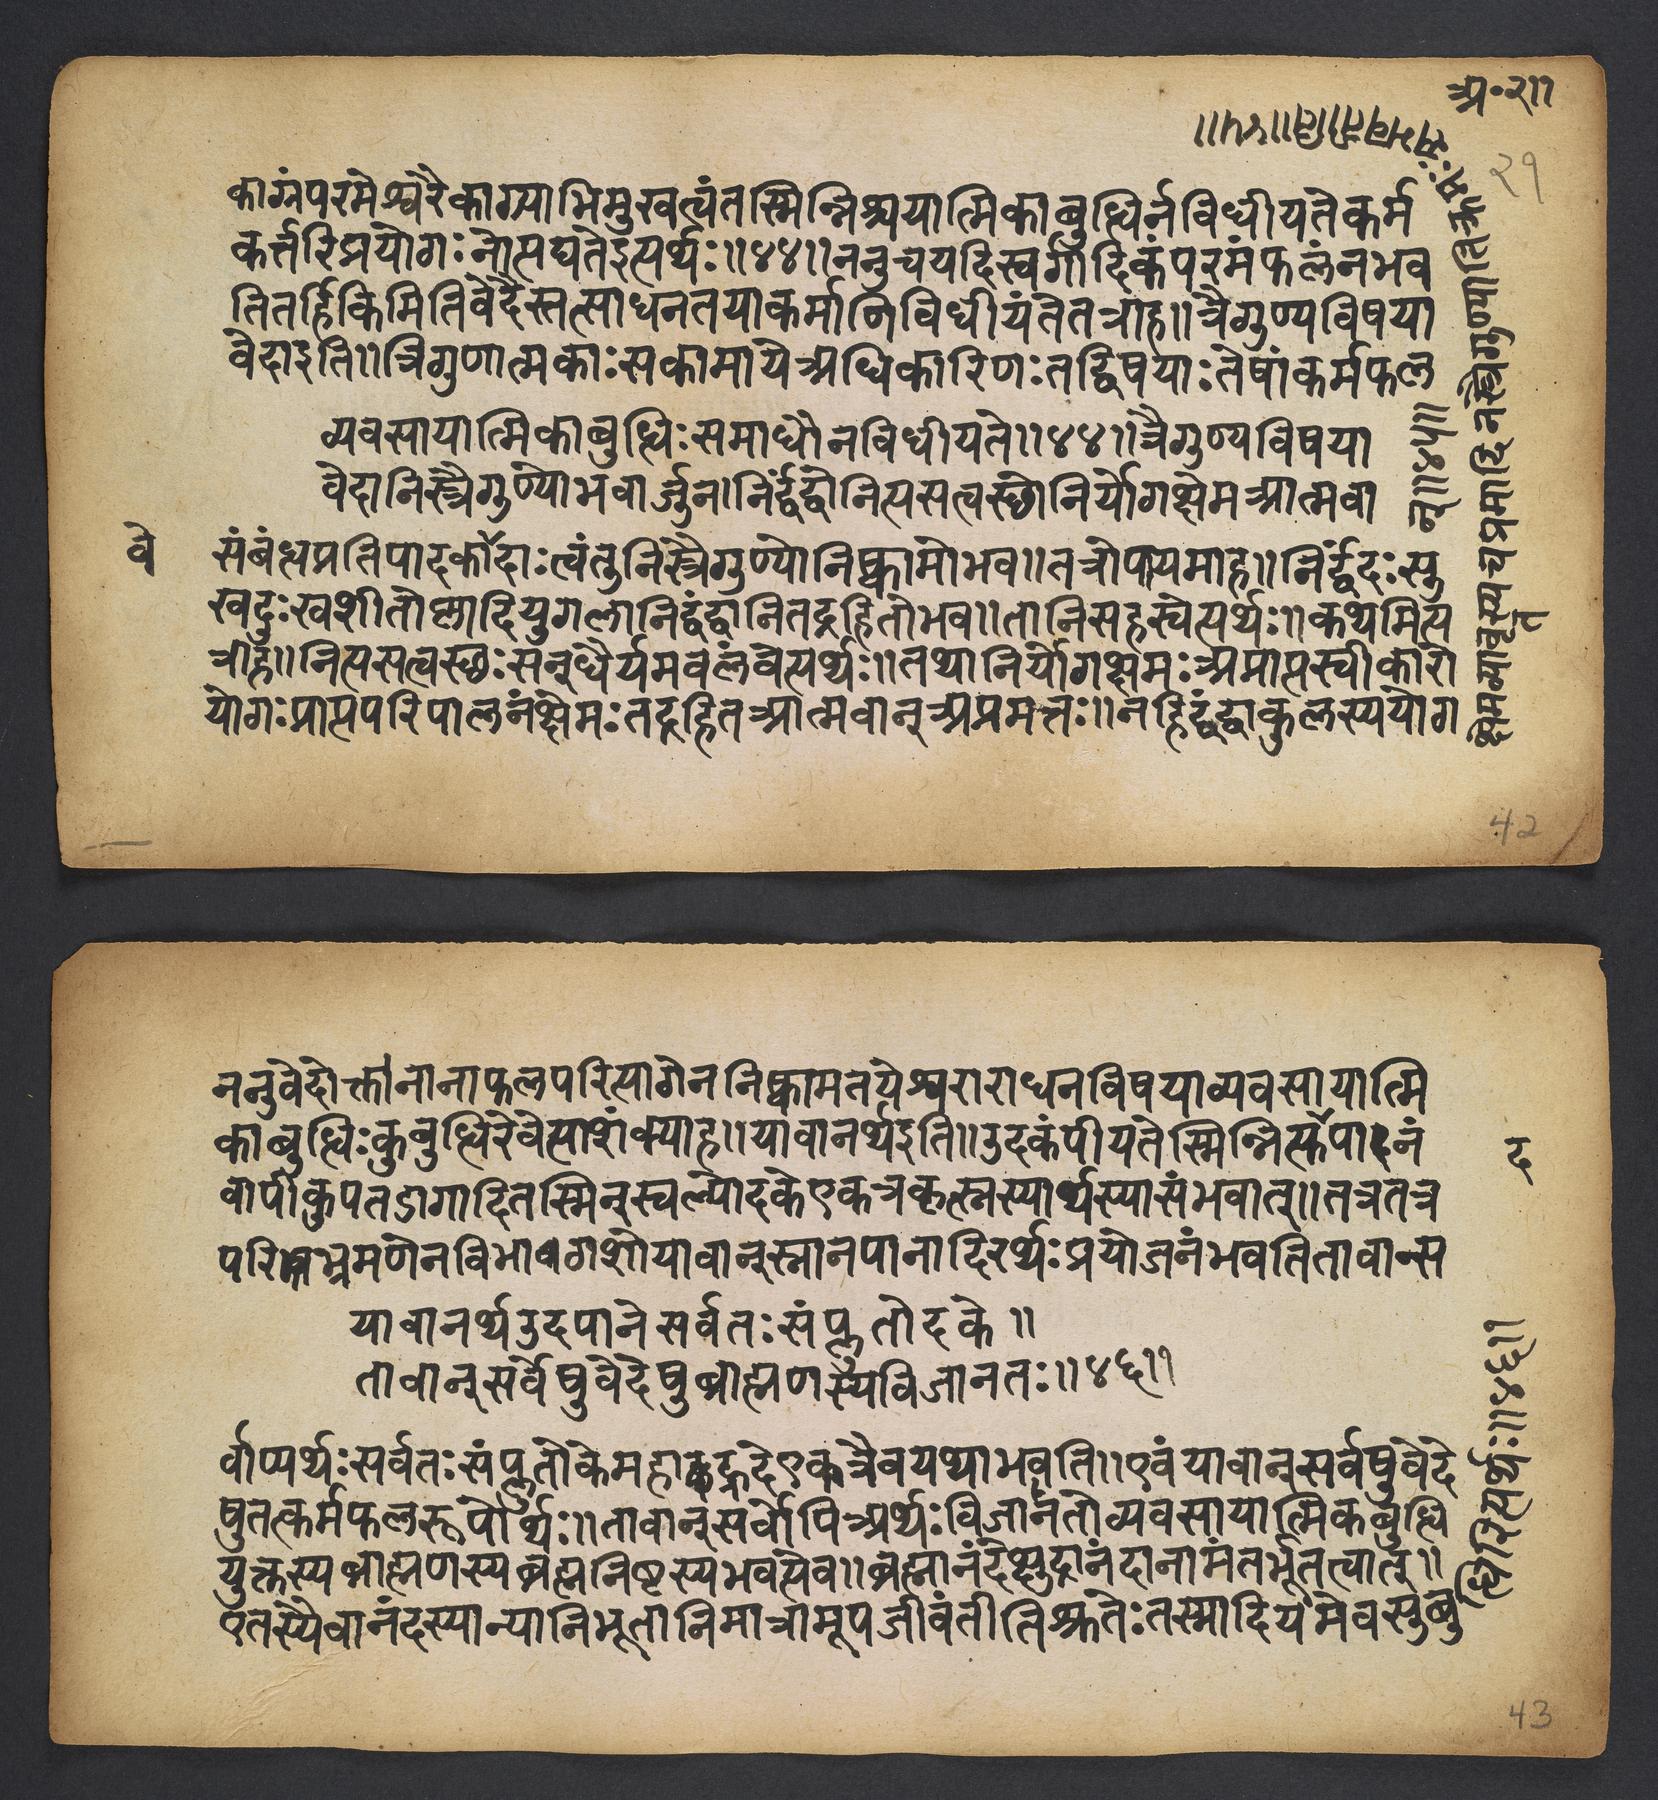 अ॰२॥
२१
काग्रंपरमेश्वरैकाग्र्याभिमुखत्वंतस्मिन्निश्चयात्मिकाबुद्धिर्नविधीयतेकर्म
कर्त्तरिप्रयोगःनोत्पद्यतेइत्यर्थः॥४४॥ननुचयदिस्वर्गादिकंपरमंफलंनभव
तितर्हिकिमितिवेदैस्तत्साधनतयाकर्माणिविधीयंतेतत्राह॥त्रैगुण्यविषया
वेदाइति॥त्रिगुणात्मकाःसकामायेअधिकारिणःतद्विषयाःतेषांकर्मफल
व्यवसायात्मिकाबुद्धिःसमाधौनविधीयते॥४४॥त्रैगुण्यविषया
वेदानिस्त्रैगुण्योभवार्ज्जुन।निर्द्वंद्वोनित्यसत्वस्छोनिर्योगक्षेमआत्मवा
न्॥४५॥
वे
संबंधप्रतिपादकोदाःत्वंतुनिस्त्रैगुण्योनिष्कामोभव॥तत्रोपायमाह॥निर्द्वंदःसु
खदुःखशीतोष्णादियुगलानिद्वंद्वानितद्रहितोभव॥तानिसहस्वेत्यर्थः॥कथमित्य
त्राह॥नित्यसत्वस्छःसन्धैर्यमवलंवेत्यर्थः॥तथानिर्योगक्षेमःअप्राप्तस्वीकारो
योगःप्राप्तपरिपालनंक्षेमःतद्रहितआत्मवान्अप्रमत्तः॥नहिद्वंद्वाकुलस्ययोग
क्षेमव्यापृतस्यचप्रमादिनस्त्रैगुण्यातिक्रमः
ननुवेदोक्तानानाफलपरित्यागेननिष्कामतयेश्वराराधनविषयाव्यवसायात्मि
काबुद्धिःकुबुद्धिरेवेत्याशंक्याह॥यावानर्थइति॥उदकंपीयतेस्मिन्नित्युपानं
द
वापीकुपतडागादितस्मिन्स्वल्पोदकेएकत्रकृत्स्नस्यार्थस्यासंभवात्॥तत्रतत्र
परिभ्रमणेनविभागशोयावान्स्नानपानादिरर्थःप्रयोजनंभवतितावान्स
यावानर्थउदपानेसर्वतःसंप्लुतोदके॥
तावान्सर्वेषुवेदेषुब्राह्मणस्यविजानतः॥४६॥
र्वोप्यर्थःसर्वतःसंप्लुतोकेमहाह्रदेएकत्रैवयथाभवति॥एवंयावान्सर्वेषुवेदे
षुतत्कर्मफलरूपोर्थः॥तावान्सर्वोपिअर्थःविजानतोव्यवसायात्मिकबुद्धि
युक्तस्यब्राह्मणस्यब्रह्मनिष्टस्यभवत्येव॥ब्रह्मानंदेक्षुद्रानंदानामंतर्भूतत्वात्॥
एतस्यैवानंदस्यान्यानिभूतानिमात्रामूपजीवंतीतिश्रुतेःतस्मादियमेवसुबु
द्धिरित्यर्थः॥४६॥
42
43